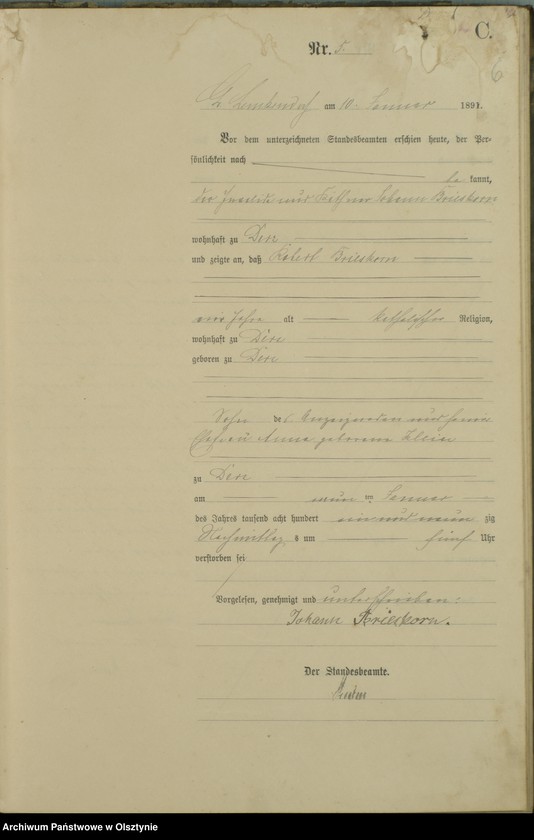 C.
Nr. 5.
6
am 10. Januar 1891.
Vor dem unterzeichneten Standesbeamten erschien heute, der Per-
sönlichkeit nach
be kannt,
der und Johann Brieskorn
wohnhaft zu
und zeigte an, daß Robert Brieskorn
Jahre alt katholischer Religion,
wohnhaft zu
geboren zu
Sohn des Anzeigenden und seiner
Ehefrau Anna geborene Klein
zu
am neun ten Januar
des Jahres tausend acht hundert ein und neun zig
Nachmittag s um fünf Uhr
verstorben sei
Vorgelesen, genehmigt und unterschrieben:
Johann Brieskorn.
Der Standesbeamte.
Archiwum Państwowe w Olsztynie